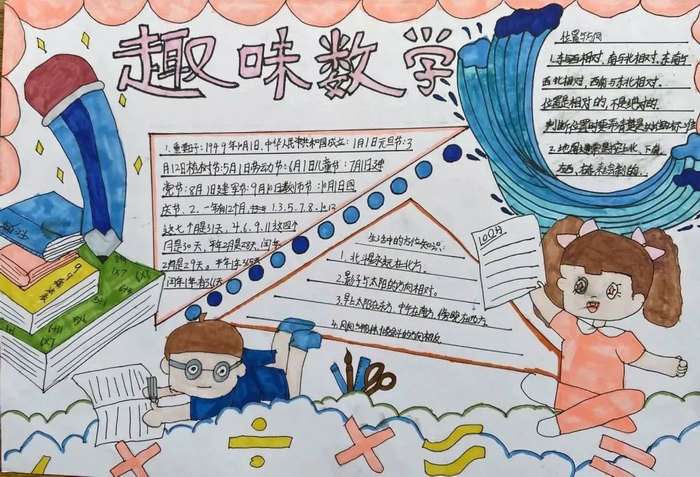 趣味数学
1.重要日子:1949年10月1日,中华人民共和国成立:1月1日元旦节:3
月12日植树节:5月1日劳动节:6月1日儿童节:7月1日建
党节:8月1日建军节:9月10日教师节:10月1日国
庆节.2.一年有12个月.1.3.5.7.8.10.12
这七个月是31天.4.6.9.11这四个
月是30天,平年2月是28天,闰年
2月是29天。平年1年365天
闰年1年有366天
生活中的方位知识:
1.北斗星永远在北方.
2.影子与太阳的方向相对.
3.早上太阳在东方,中午在南方,傍晚在西方.
4.风向与物体倾斜的方向相反
位置与方向
1.东与西相对,南与北相对,东南与
西北相对,西南与东北相对.
位置是相对的,不是绝对的.
判断位置时要弄清楚是以谁为标准
2.地图通常是按上北、下南、
左西、右东绘制的.
100分